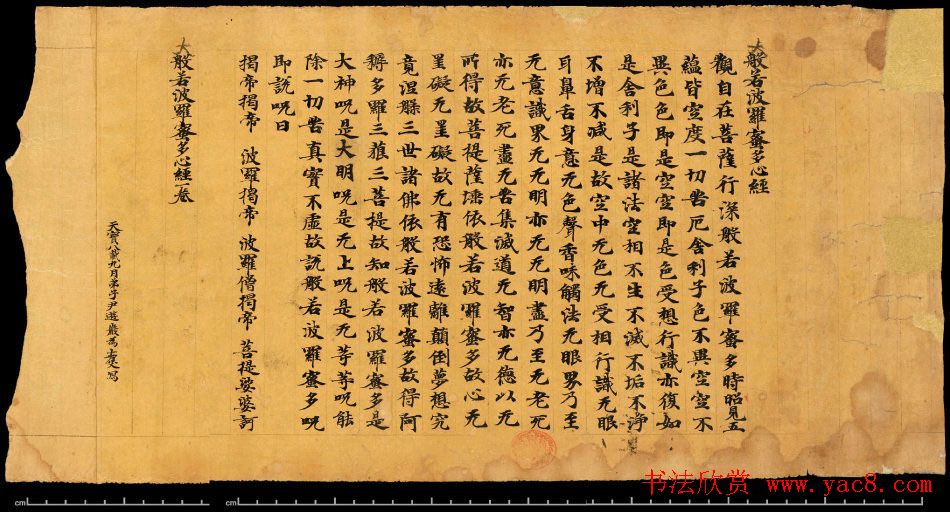 大般若波羅蜜多心經
觀自在菩薩行深般若波羅蜜多時照見五
蘊皆空度一切苦厄舍利子色不異空空不
異色色即是空空即是色受想行識亦復如
是舍利子是諸法空相不生不滅不垢不淨
不增不减是故空中无色无受相行識无眼
耳鼻舌身意无色聲香味觸法无眼界乃至
无意識界无无明亦无无明盡乃至无老死
亦无老死盡无苦集滅道无智亦无德以无
所得故菩提薩埵依般若波羅蜜多故心无
罣礙无罣礙故无有恐怖遠離顛倒夢想究
竟涅槃三世諸佛依般若波羅蜜多故得阿
耨多羅三藐三菩提故知般若波羅蜜多是
大神呪是大明呪是无上呪是无等等呪能
除一切苦真實不虛故說般若波羅蜜多呪
即說呪曰
揭帝揭帝 波羅揭帝 波羅僧揭帝 菩提娑婆訶
大般若波羅蜜多心經一卷
天寶八載九月弟子尹遊巖為寫
cm
cm
书法欣赏 www.yac8.com